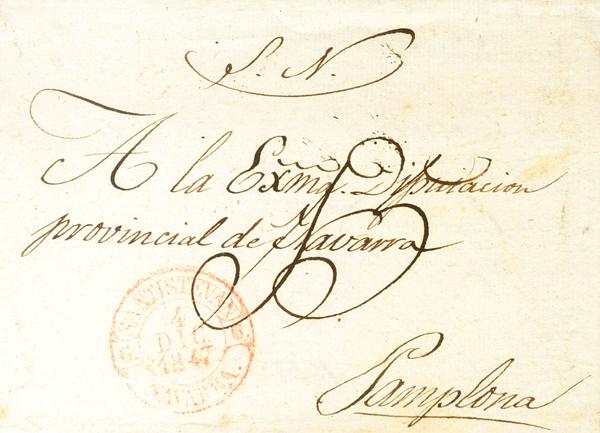 S. N.
A la Exma. Diputacion
provincial de Navarra
Pamplona
SANTISTEVAN
4
DIC
1847
NAVARRA.